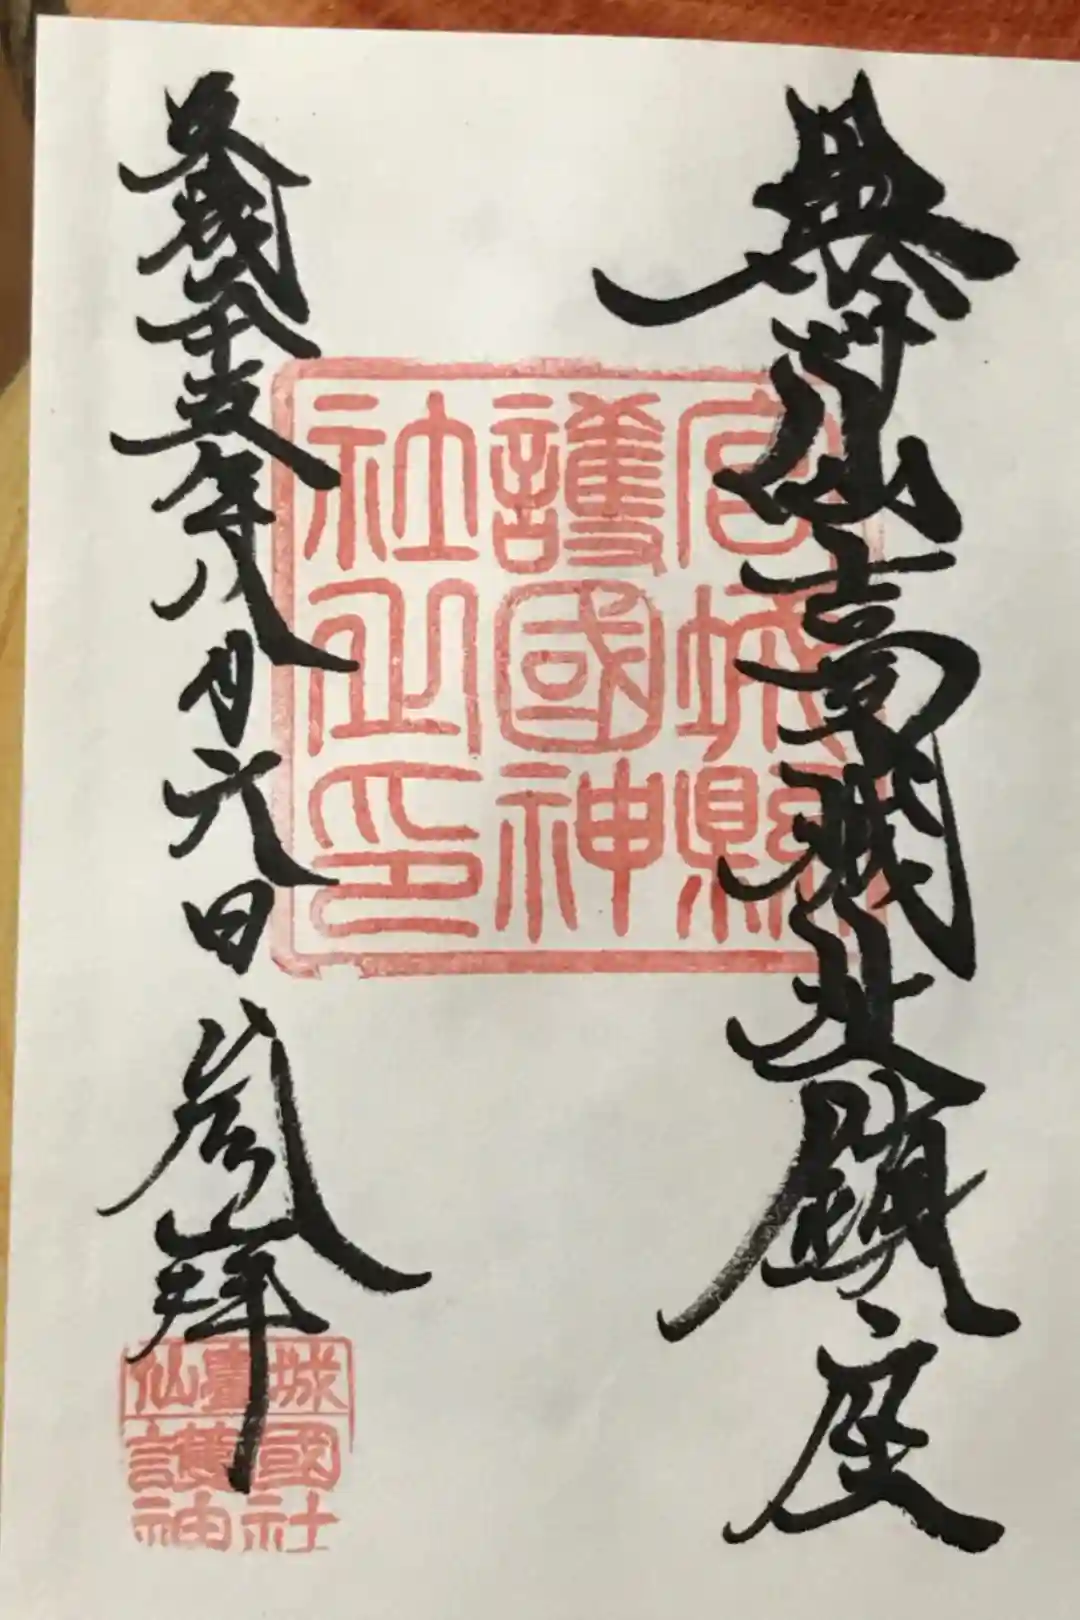 仙臺城址鎮座
宮城縣
護國神
社之印
五年八月六日 参拝
仙臺城
護國
神社